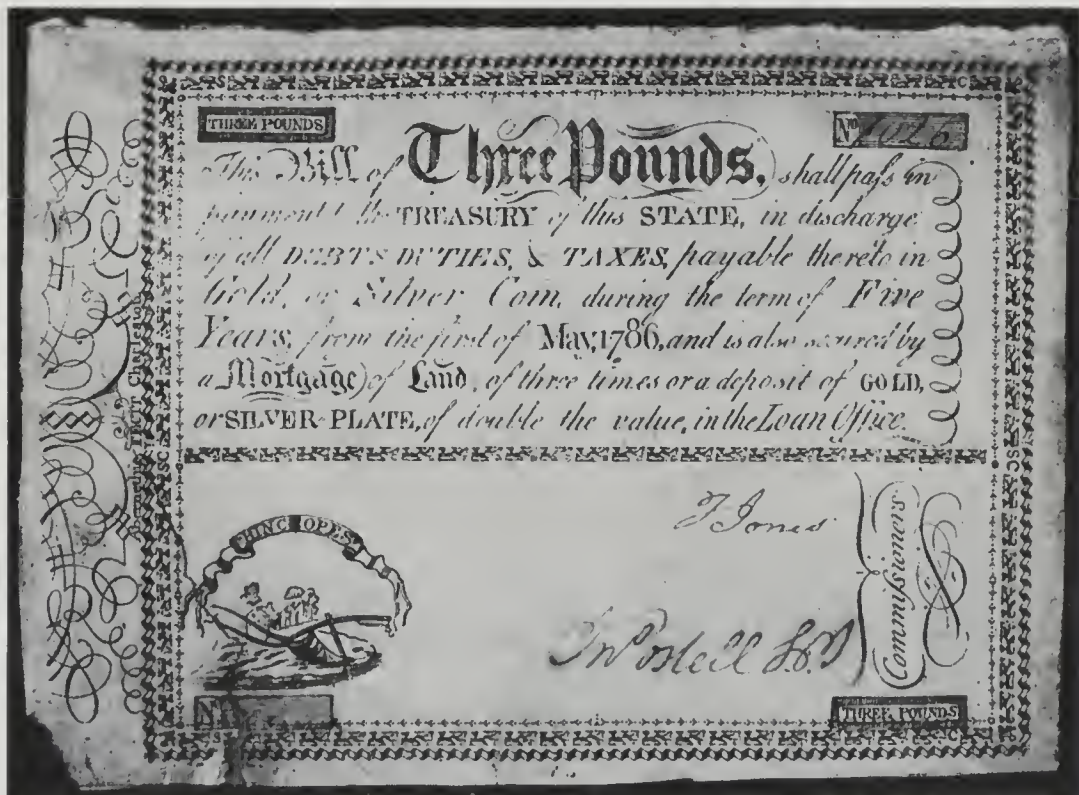 S C
THREE POUNDS
No
This Bill of Three Pounds, shall paſs in
payment the TREASURY of this STATE, in discharge
of all DEBTS DUTIES, & TAXES, payable thereto in
Gold, or Silver Coin, during the term of Five
Years, from the first of May, 1786, and is also secured by
a Mortgage of Land, of three times or a deposit of GOLD,
or SILVER-PLATE, of double the value, in the Loan Office.
HINC OPES
J Jones
Commiſsioners
No
THREE POUNDS
S C
Charleston
SC
SC